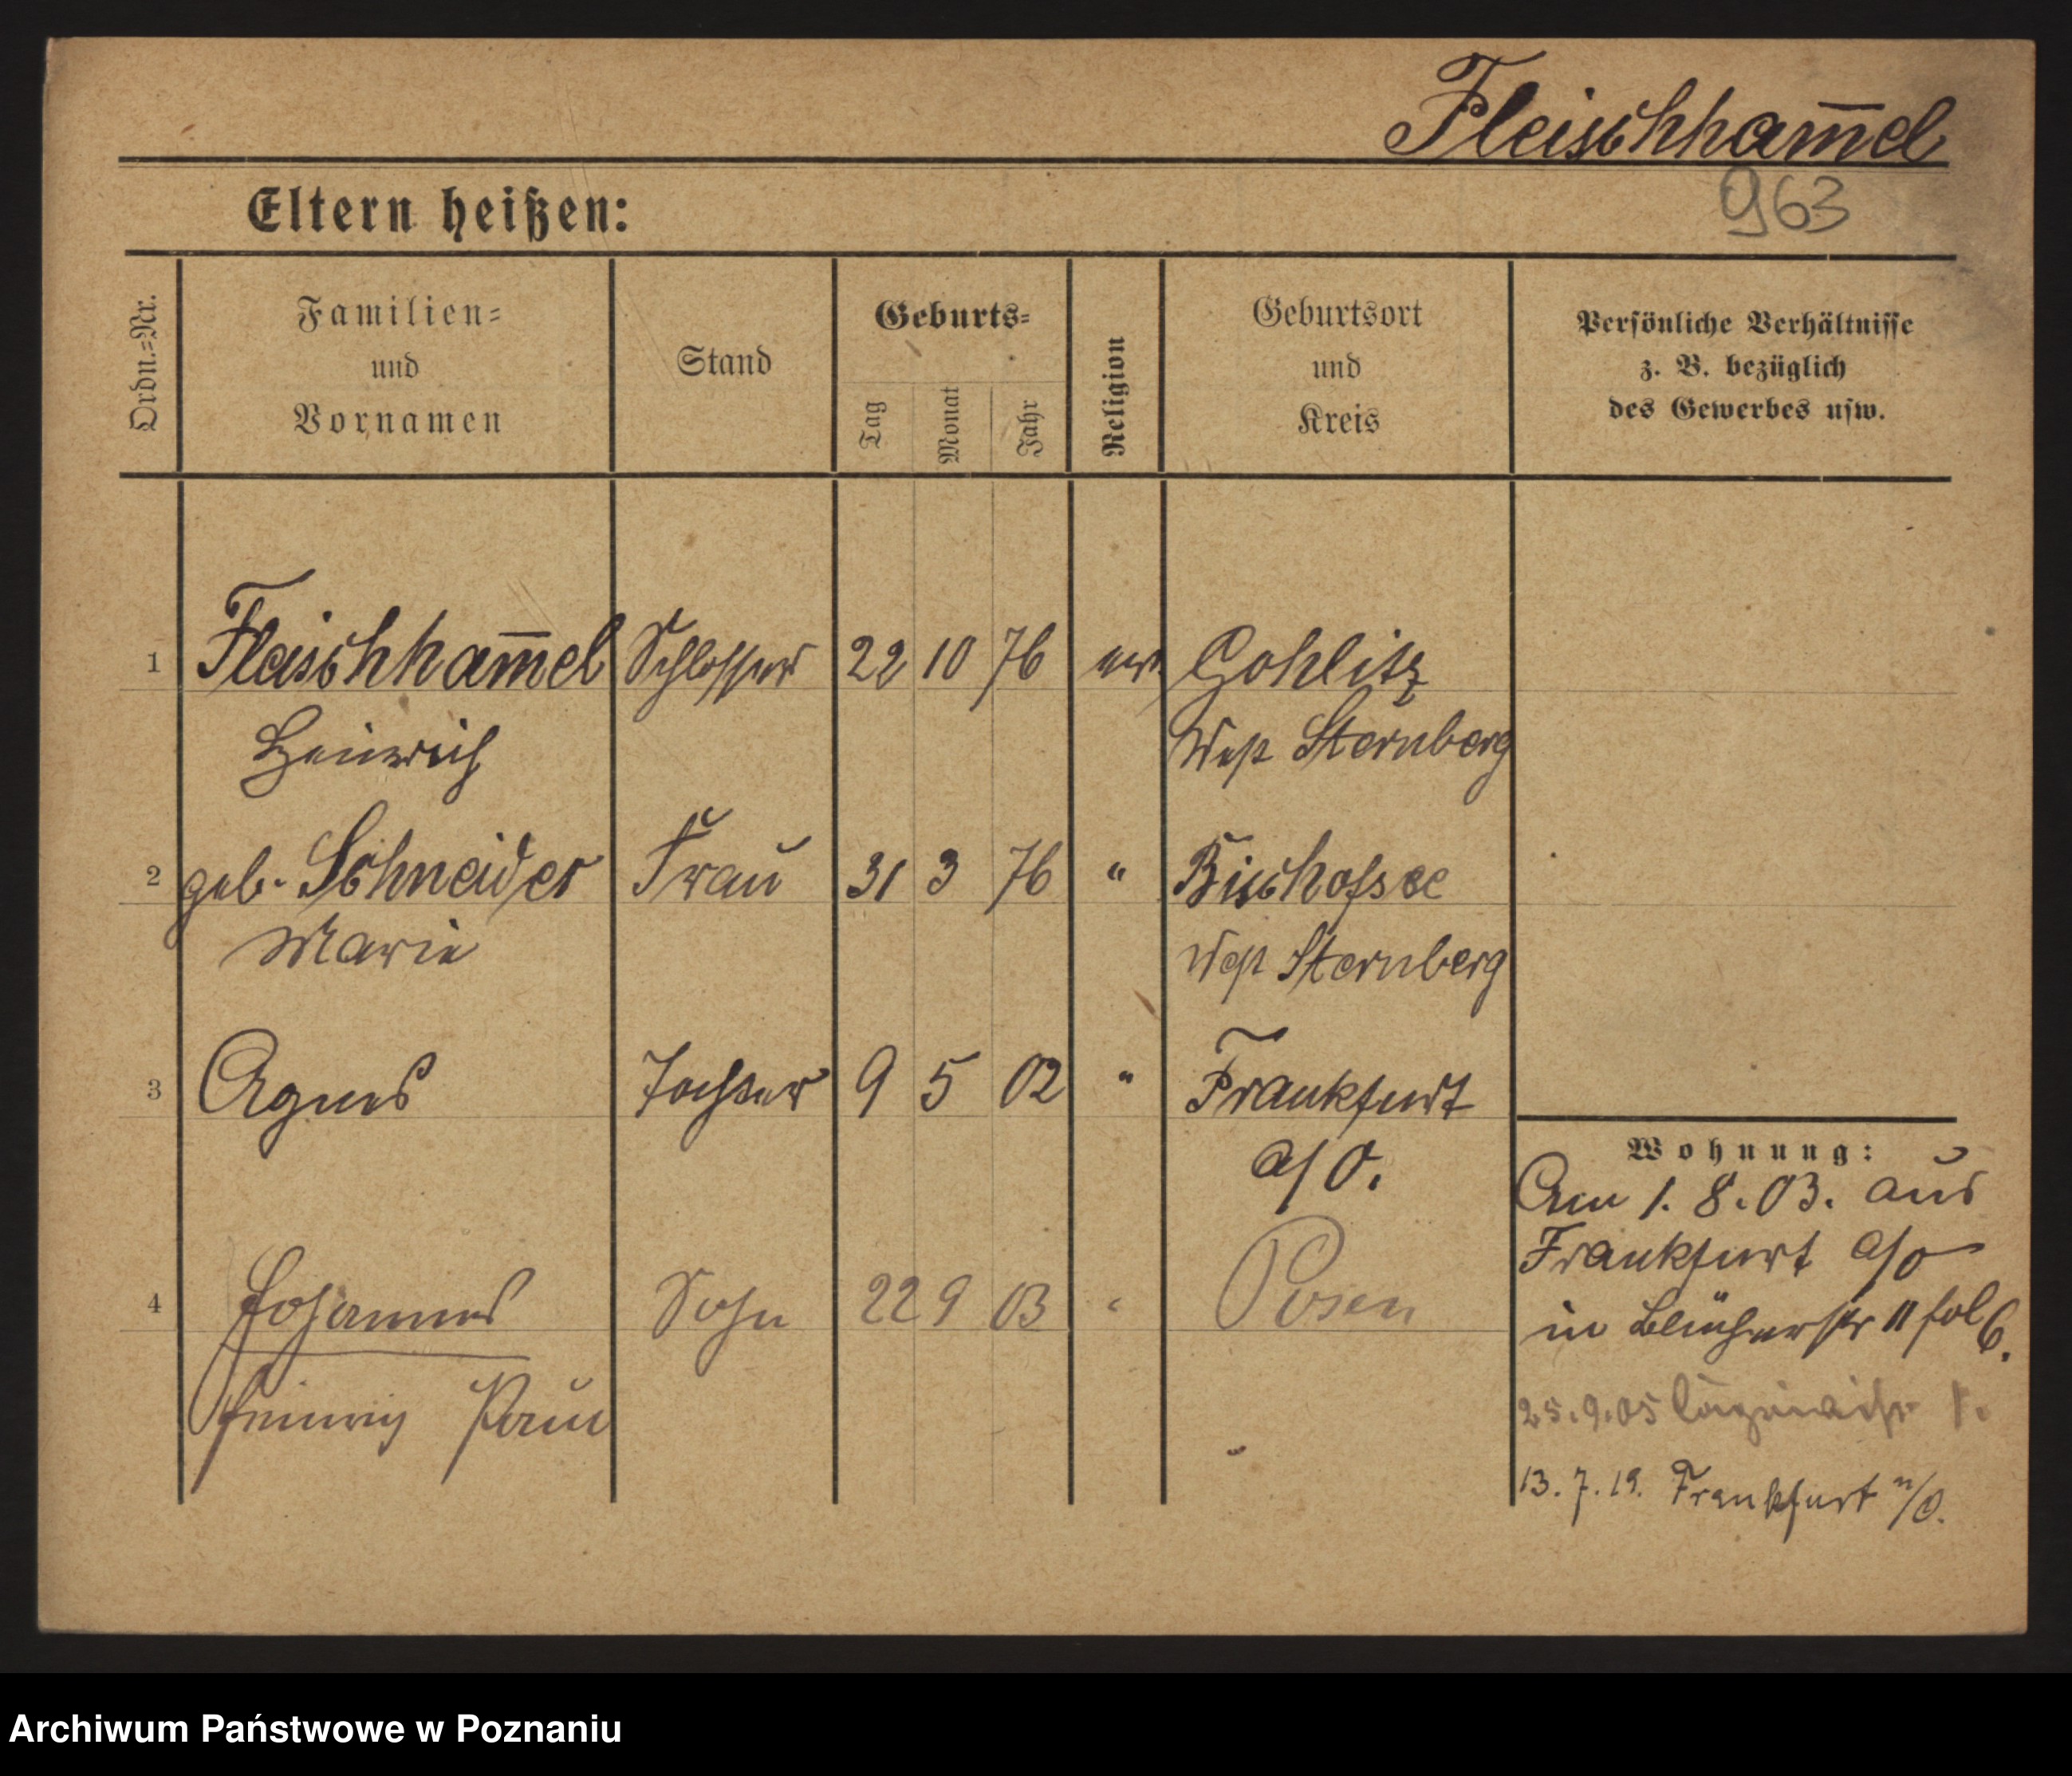 Fleischham̅el
963
Eltern heißen:
Ordn.=Nr.
Familien=
und
Vornamen
Stand
Geburts=
Tag
Monat
Jahr
Religion
Geburtsort
und
Kreis
Persönliche Verhältnisse
z. B. bezüglich
des Gewerbes usw.
1 Fleischham̅el Schlosser 22 10 76 ev. Gohlitz
Heinrich West Sternberg
2 geb. Schneider Frau 31 3 76 " Bischofsee
Marie West Sternberg
3 Agnes Tochter 9 5 02 " Frankfurt
a/O.
4 Johannes Sohn 22 9 03 " Posen
Heinrich Paul
Wohnung:
Am 1. 8. 03. aus
Frankfurt a/O
in Blücherstr 11 fol 6.
25.9.05
13. 7. 19. Frankfurt a/O.
Archiwum Państwowe w Poznaniu